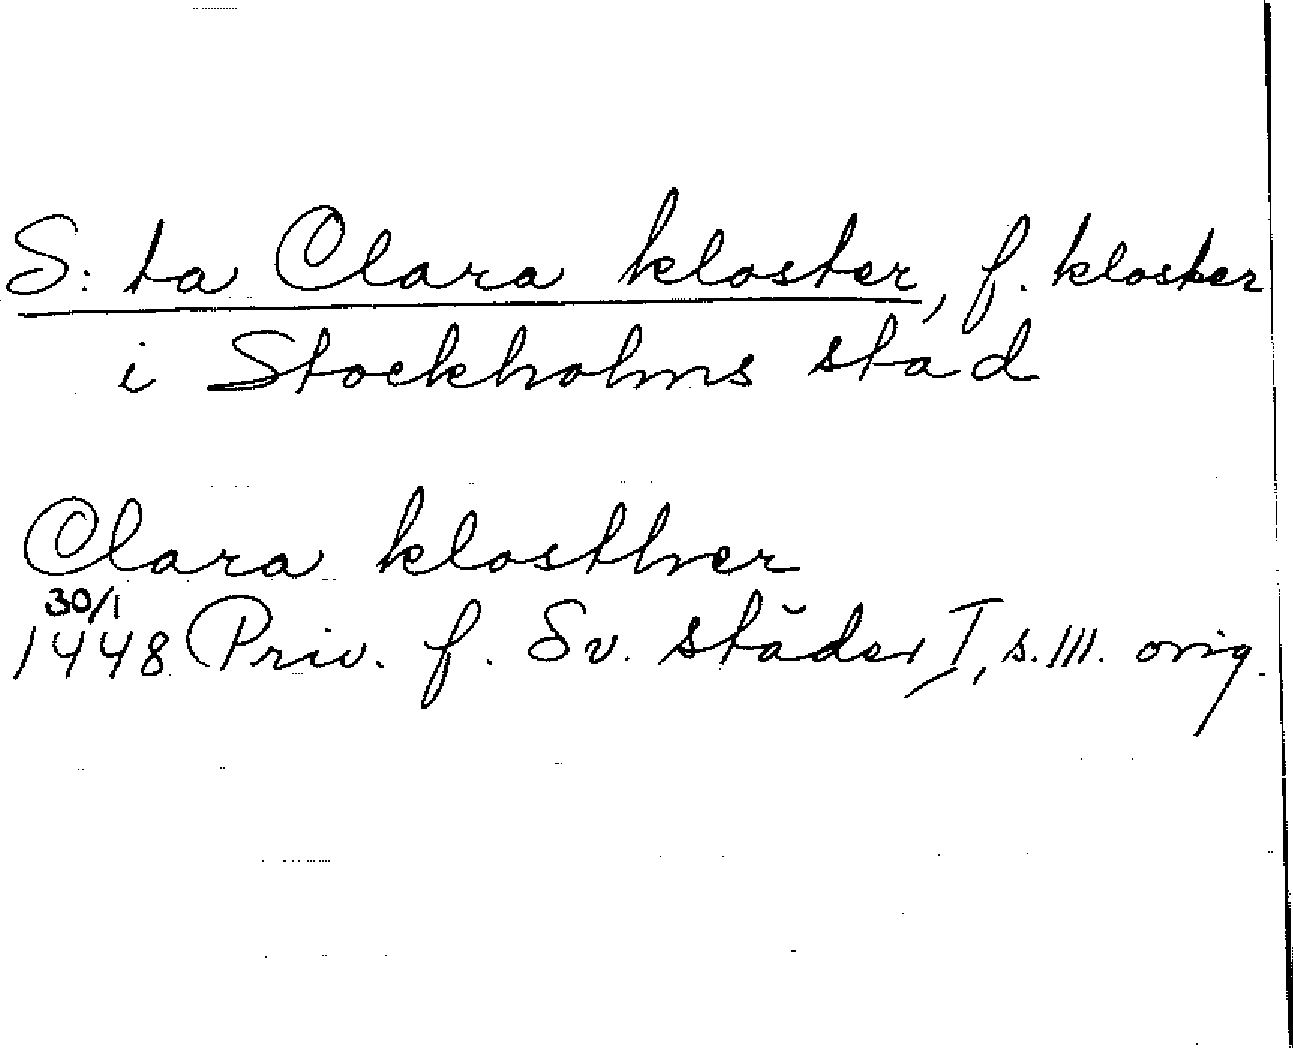 S:ta Clara kloster, f. kloster
i Stockholms stad
Clara klosther
30/1
1448 Priv. f. Sv. städer I, s. 111. orig.